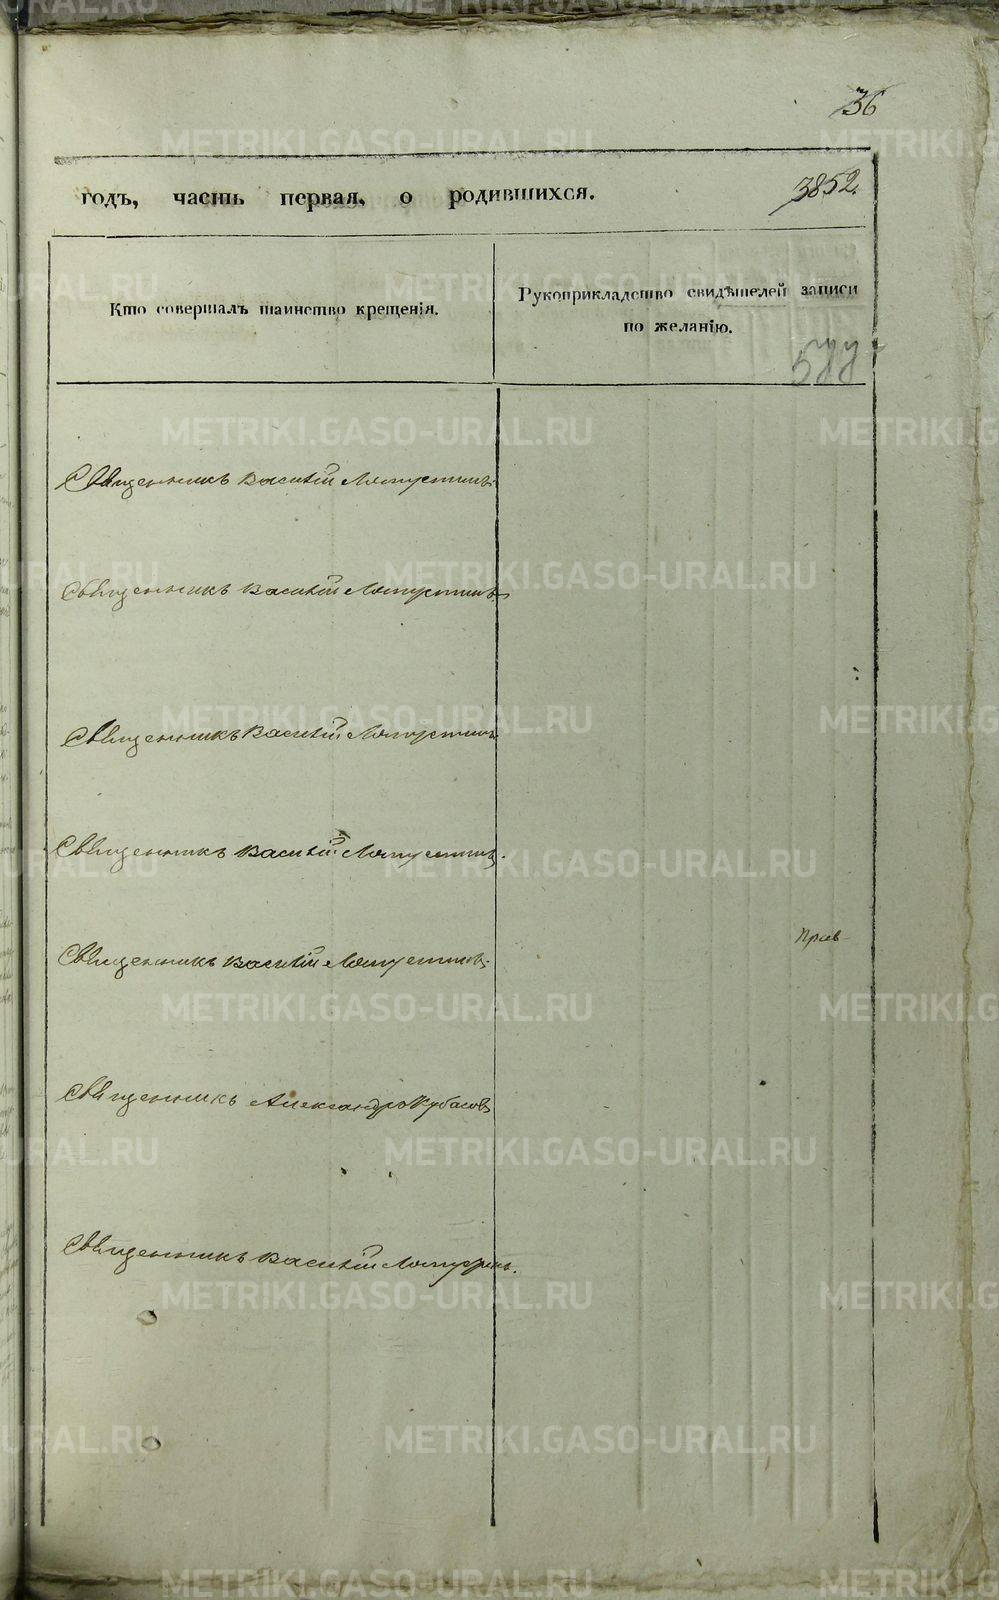 36
годъ, часть первая, о родившихся.
3852.
Кто совершалъ таинство крещенія.
Рукоприкладство свидѣтелей записи
по желанію.
577
Священникъ Василій
Священникъ Василій
Священникъ Василій
Священникъ Василій
Священникъ Василій
Священникъ Александръ Кубасовъ
Священникъ Василій
METRIKI.GASO-URAL.RU